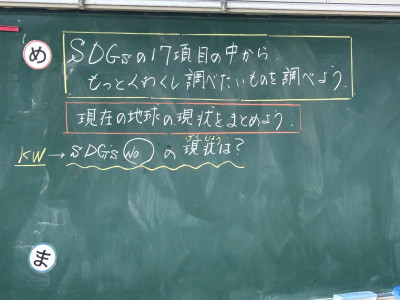 め
SDGsの17項目の中から
もっとくわしく調べたいものを調べよう.
現在の地球の現状をまとめよう.
げんじょう
KW→SDGs No の 現状は?
ま